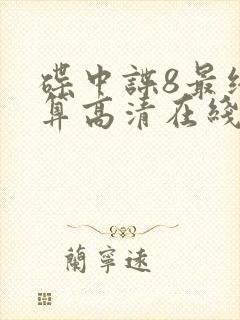 碟中諜8最終
算高清在綫
蘭寧遠